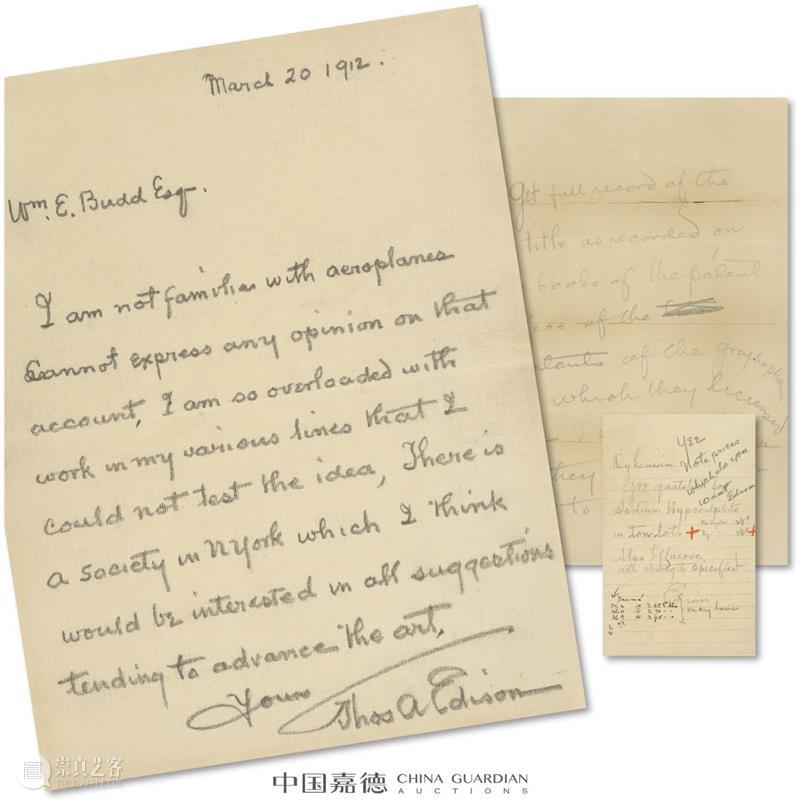 March 20 1912.
Wm. E. Budd Esq.
I am not familiar with aeroplanes
& cannot express any opinion on that
account, I am so overloaded with
work in my various lines that I
could not test the idea, There is
a society in NYork which I think
would be interested in all suggestions
tending to advance the art,
Yours
Thos A Edison
Get full record of the
title as recorded on
books of the patent
of the
patents of the graphophone
which they licensed
they
to
YEE
Note prices
which do you
want Edison
Get quotations for
Sodium Hyposulphite
in ton lots
Also Glucose,
with strength specified
崇真艺客
中国嘉德 CHINA GUARDIAN
AUCTIONS